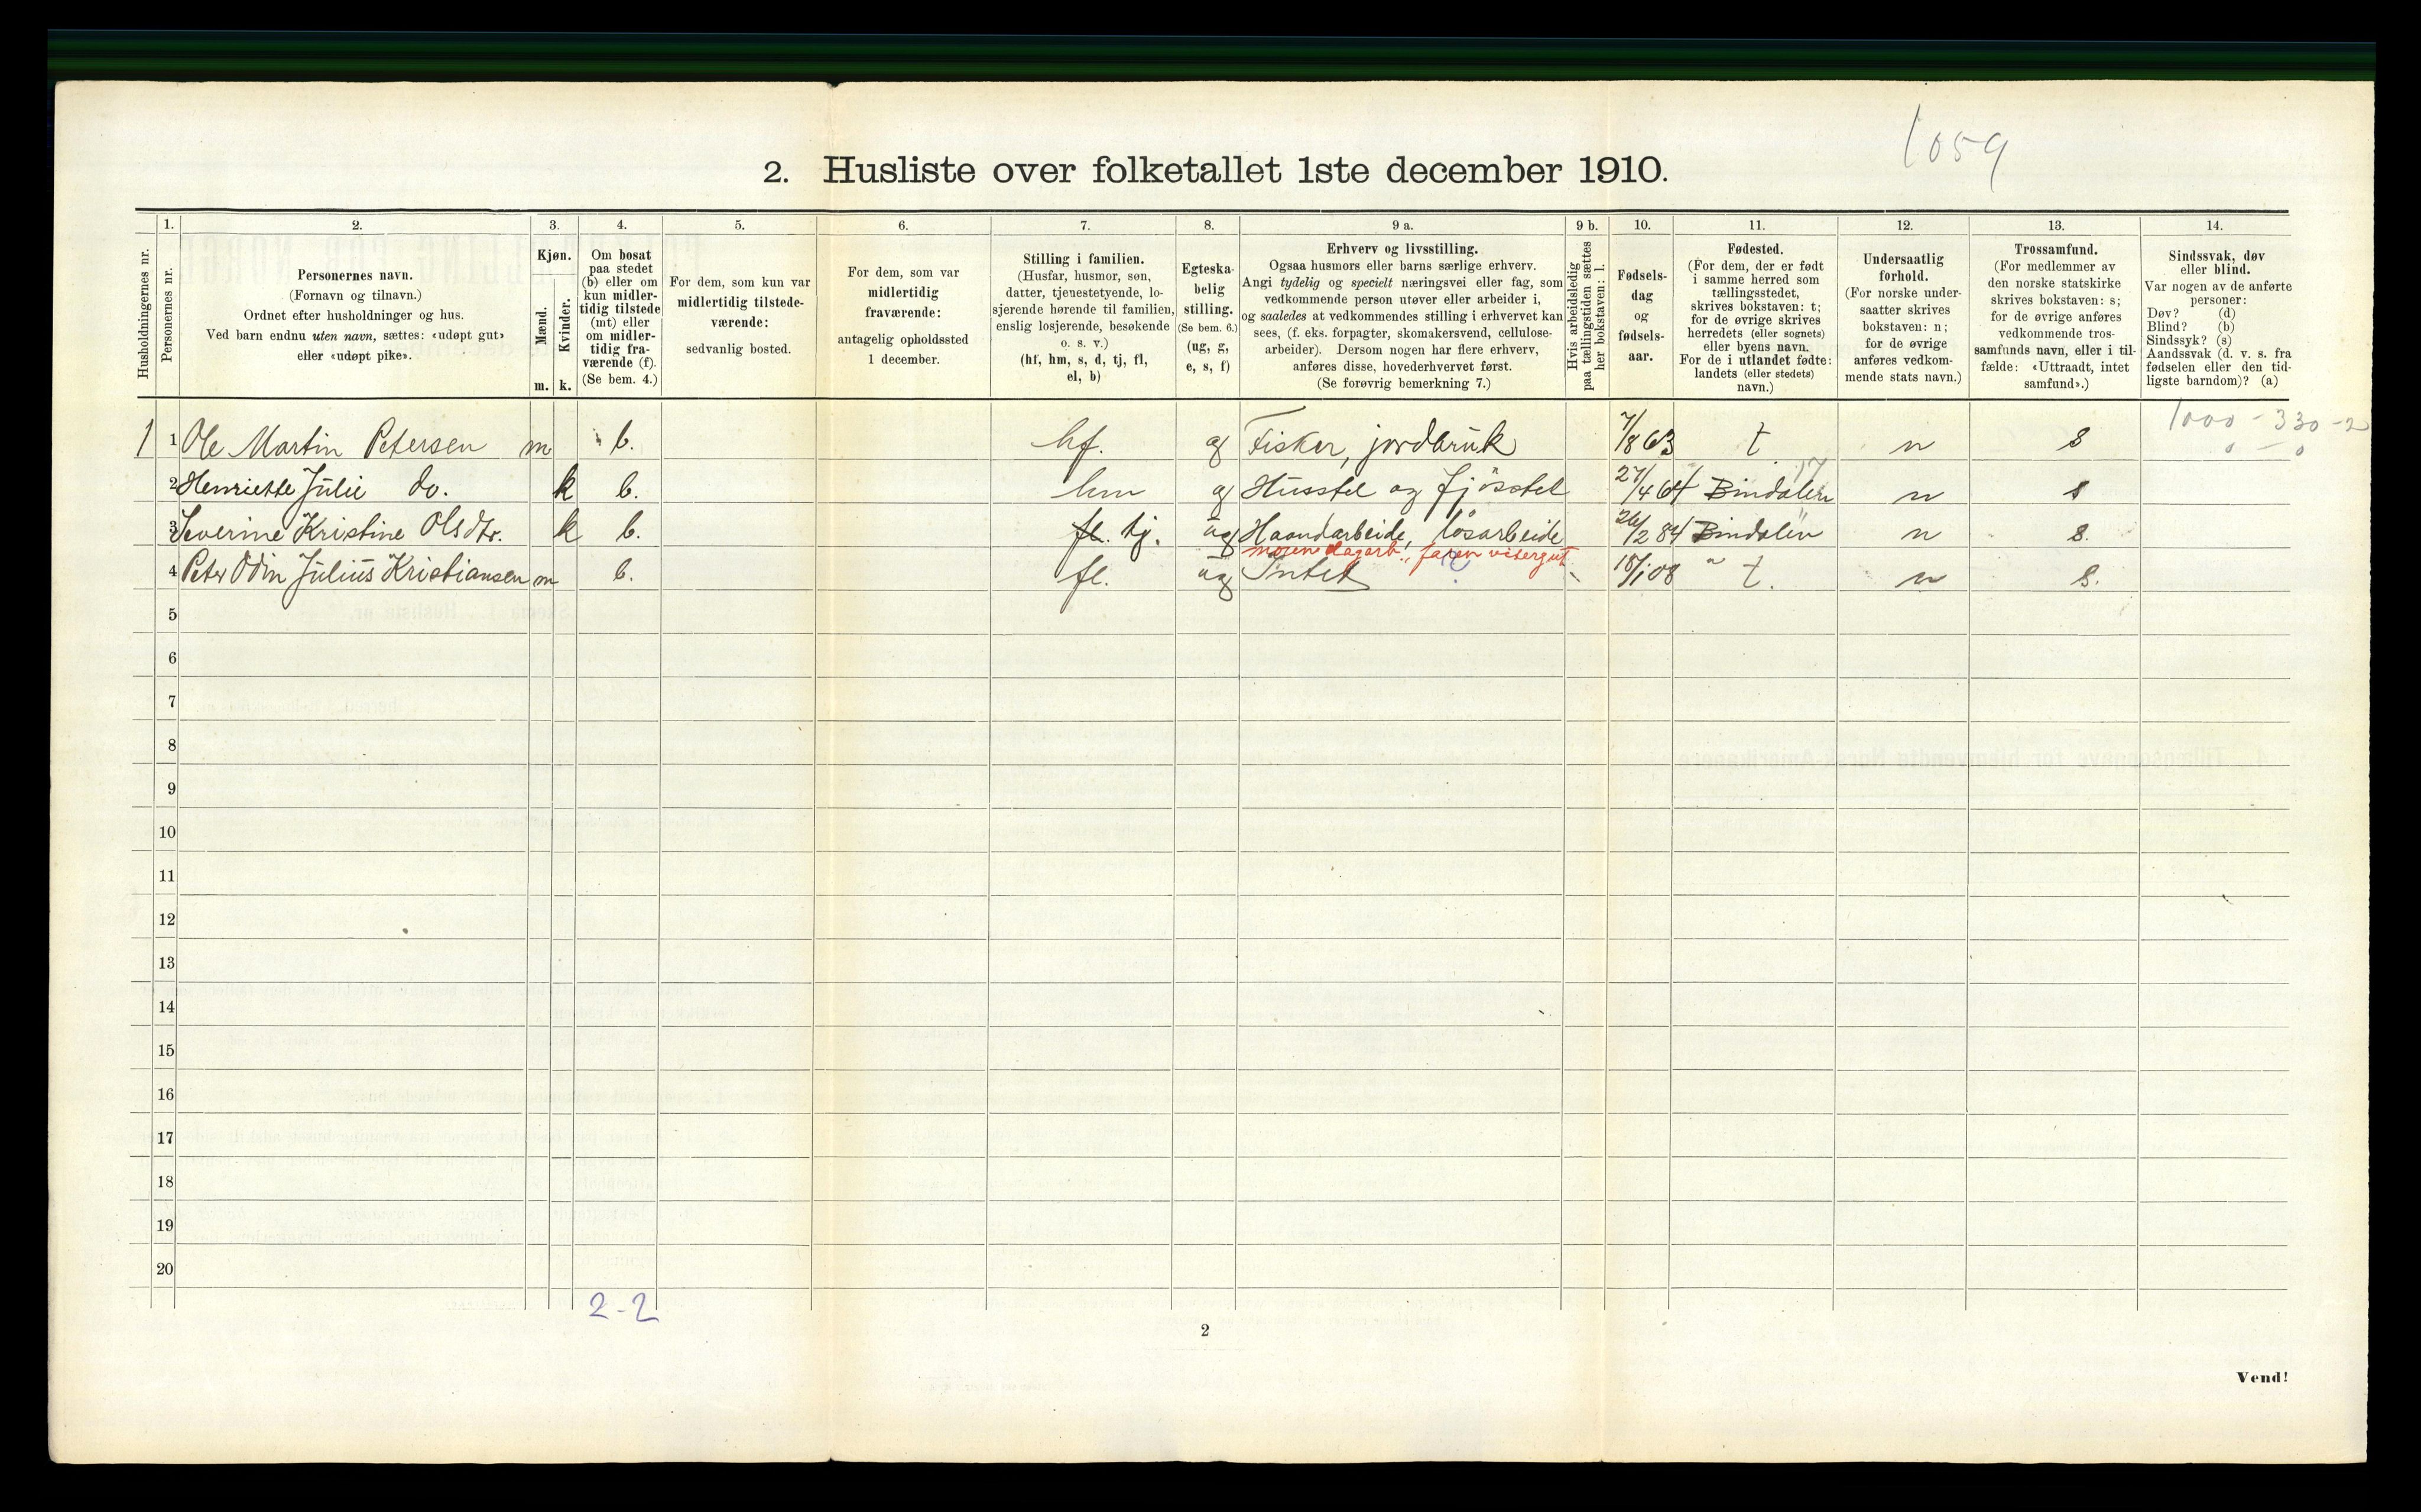 1059
2. Husliste over folketallet 1ste december 1910.
Husholdningernes nr.
1.
Personernes nr.
2.
Personernes navn.
(Fornavn og tilnavn.)
Ordnet efter husholdninger og hus.
Ved barn endnu uten navn, sættes: «udøpt gut»
eller «udøpt pike».
3.
Kjøn.
Mænd.
Kvinder.
m. k.
4.
Om bosat
paa stedet
(b) eller om
kun midler-
tidig tilstede
(mt) eller
om midler-
tidig fra-
værende (f).
(Se bem. 4.)
5.
For dem, som kun var
midlertidig tilstede-
værende:
sedvanlig bosted.
6.
For dem, som var
midlertidig
fraværende:
antagelig opholdssted
1 december.
7.
Stilling i familien.
(Husfar, husmor, søn,
datter, tjenestetyende, lo-
sjerende hørende til familien,
enslig losjerende, besøkende
o. s. v.)
(hf, hm, s, d, tj, fl,
el, b)
8.
Egteska-
belig
stilling.
(Se bem. 6.)
(ug, g,
e, s, f)
9 a.
Erhverv og livsstilling.
Ogsaa husmors eller barns særlige erhverv.
Angi tydelig og specielt næringsvei eller fag, som
vedkommende person utøver eller arbeider i,
og saaledes at vedkommendes stilling i erhvervet kan
sees, (f. eks. forpagter, skomakersvend, cellulose-
arbeider). Dersom nogen har flere erhverv,
anføres disse, hovederhvervet først.
(Se forøvrig bemerkning 7.)
9 b.
Hvis arbeidsledig
paa tællingstiden sættes
her bokstaven: l.
10.
Fødsels-
dag
og
fødsels-
aar.
11.
Fødested.
(For dem, der er født
i samme herred som
tællingsstedet,
skrives bokstaven: t;
for de øvrige skrives
herredets (eller sognets)
eller byens navn.
For de i utlandet fødte:
landets (eller stedets)
navn.)
12.
Undersaatlig
forhold.
(For norske under-
saatter skrives
bokstaven: n;
for de øvrige
anføres vedkom-
mende stats navn.)
13.
Trossamfund.
(For medlemmer av
den norske statskirke
skrives bokstaven: s;
for de øvrige anføres
vedkommende tros-
samfunds navn, eller i til-
fælde: «Uttraadt, intet
samfund».)
14.
Sindssvak, døv
eller blind.
Var nogen av de anførte
personer:
Døv? (d)
Blind? (b)
Sindssyk? (s)
Aandssvak (d. v. s. fra
fødselen eller den tid-
ligste barndom)? (a)
1000 - 330 - 2
0 - 0
1 1 Ole Martin Petersen m b. hf. g Fisker, jordbruk 7/8 63 t n s
17
2 Henriette Julie do. k b. hm g Husstel og fjösstel 27/4 64 Bindalen n s
3 Severine Kristine Olsdtr. k b. fl. tj. ug Haandarbeide, lösarbeide 26/2 84 Bindalen n s.
moren dagarb., faren visergut
4 Peter Odin Julius Kristiansen m b. fl. ug Intet 18/1 08 t. n s.
5
6
7
8
9
10
11
12
13
14
15
16
17
18
19
20
2-2
2
Vend!